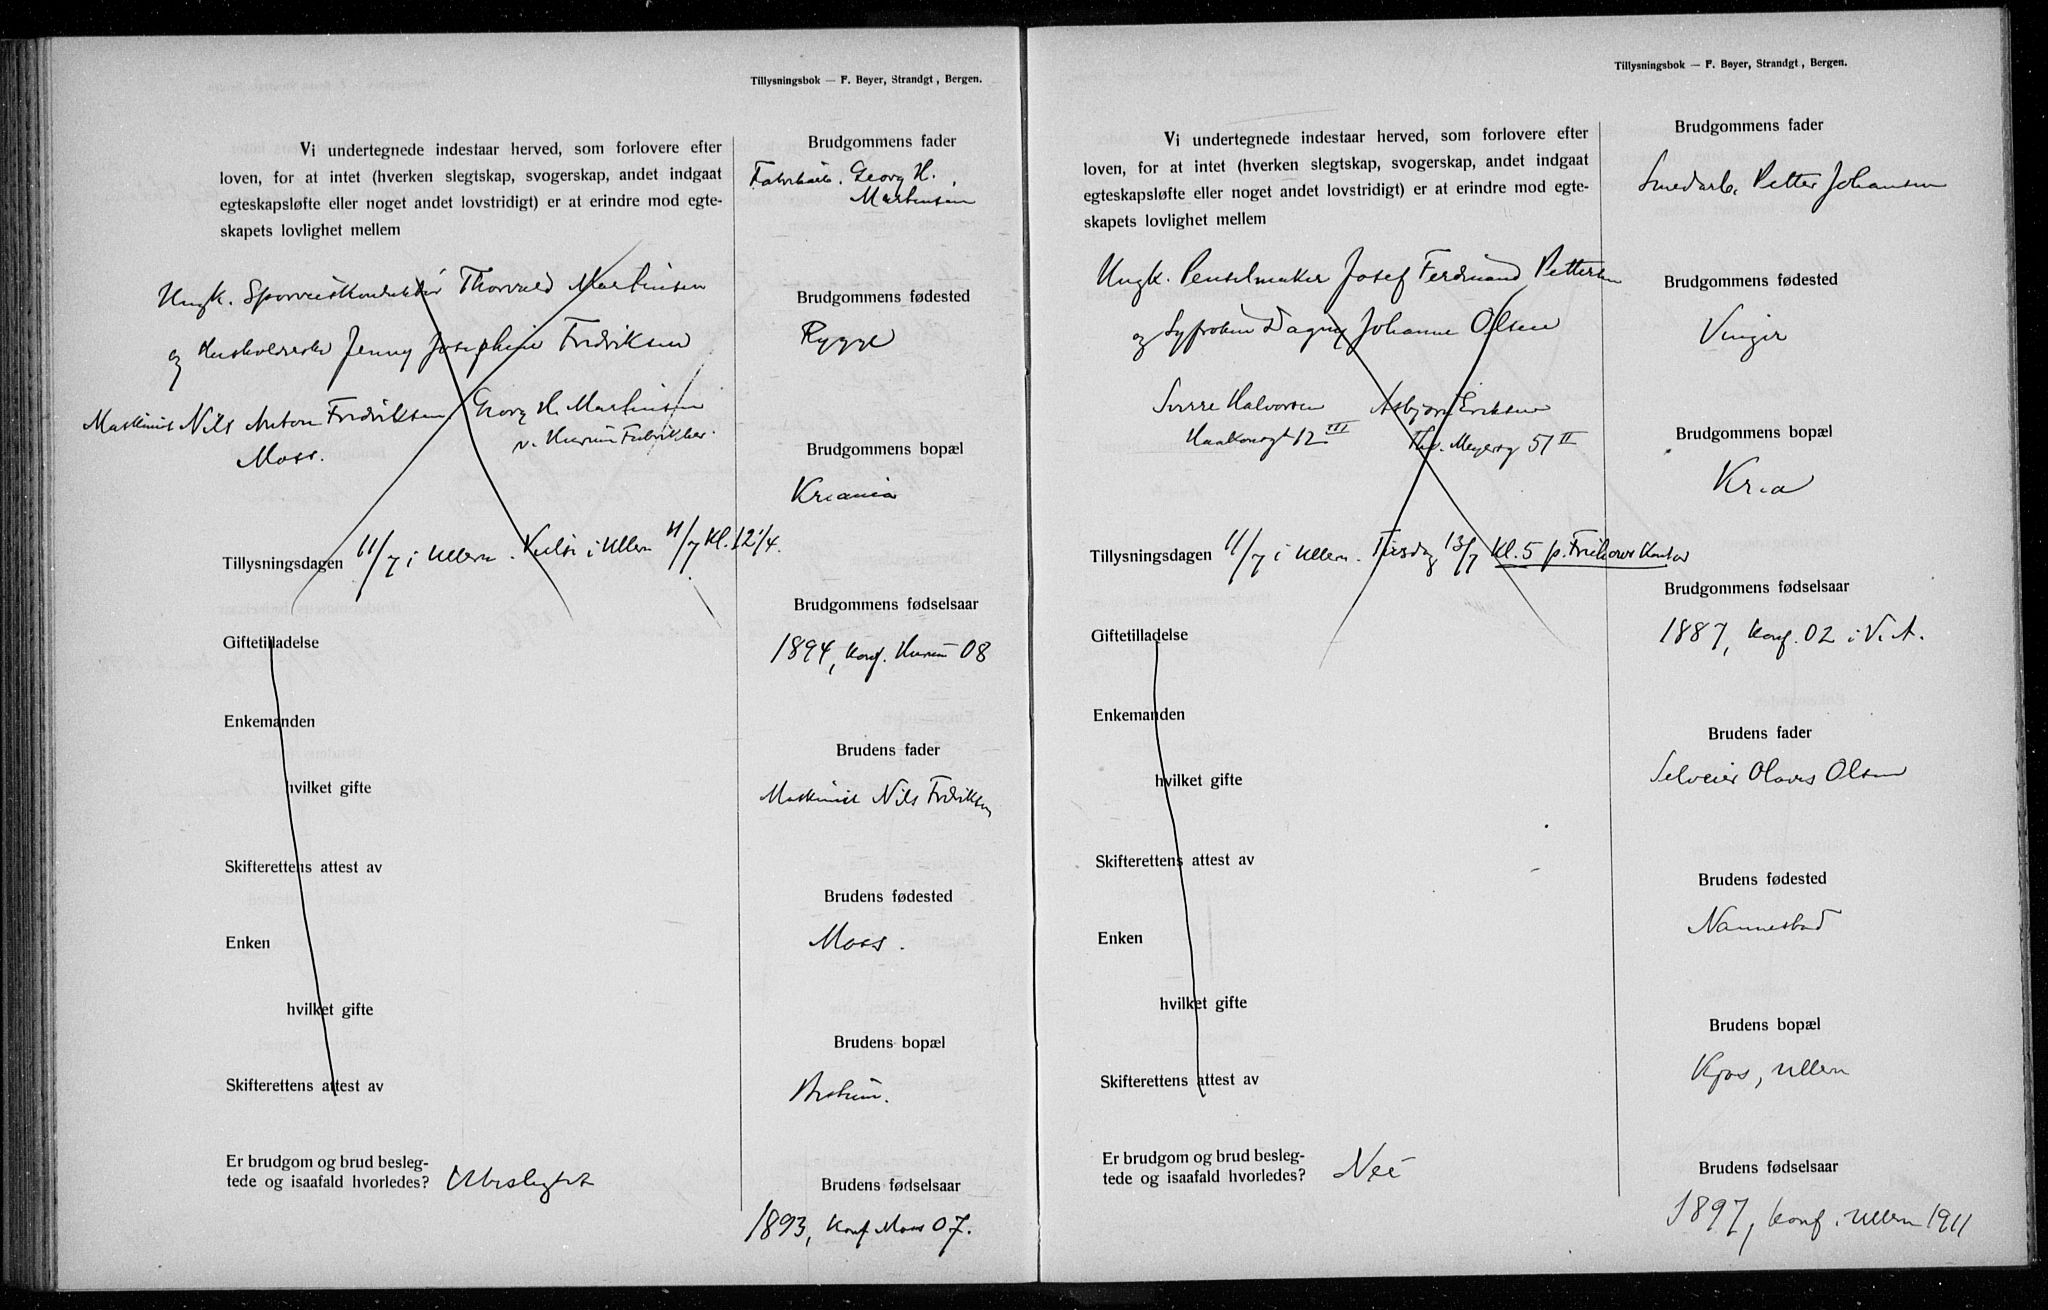 Tillysningsbok — F. Beyer, Strandgt, Bergen.
Vi undertegnede indestaar herved, som forlovere efter
loven, for at intet (hverken slegtskap, svogerskap, andet indgaat
egteskapsløfte eller noget andet lovstridigt) er at erindre mod egte-
skapets lovlighet mellem
Ungk. Sporveiskonduktør Thorvald Martinsen
og Jenny Josephine Fredriksen
Maskinist Nils Anton Fredriksen Georg H. Martinsen
Moss. v. Hurum Fabrikker
Tillysningsdagen 11/7 i Ullern. Vielse i Ullern 11/7 Kl. 12 1/4.
Giftetilladelse
Enkemanden
hvilket gifte
Skifterettens attest av
Enken
hvilket gifte
Skifterettens attest av
Er brudgom og brud besleg-
tede og isaafald hvorledes? Ubeslegtet
Brudgommens fader
Fabrikarb. Georg H.
Martinsen
Brudgommens fødested
Rygge
Brudgommens bopæl
Kr.ania
Brudgommens fødselsaar
1894, konf. Hurum 08
Brudens fader
Maskinist Nils Fredriksen
Brudens fødested
Moss.
Brudens bopæl
Bestum.
Brudens fødselsaar
1893, konf Moss 07.
Tillysningsbok — F. Beyer, Strandgt, Bergen.
Vi undertegnede indestaar herved, som forlovere efter
loven, for at intet (hverken slegtskap, svogerskap, andet indgaat
egteskapsløfte eller noget andet lovstridigt) er at erindre mod egte-
skapets lovlighet mellem
Ungk. Penselmaker Josef Ferdinand Pettersen
og Syfrøken Dagny Johanne Olsen
Sverre Halvorsen Asbjørn Eriksen
Haakonsgt 12 III Thv. Meyersg 51 II
Tillysningsdagen 11/7 i Ullern. Tirsdag 13/7 Kl. 5 p. Kontor
Giftetilladelse
Enkemanden
hvilket gifte
Skifterettens attest av
Enken
hvilket gifte
Skifterettens attest av
Er brudgom og brud besleg-
tede og isaafald hvorledes? Nei
Brudgommens fader
Smedarb. Petter Johansen
Brudgommens fødested
Vinger
Brudgommens bopæl
Kr.a
Brudgommens fødselsaar
1887, konf. 02 i V. A.
Brudens fader
Selveier Olaves Olsen
Brudens fødested
Nannestad
Brudens bopæl
Kjos, Ullern
Brudens fødselsaar
1897, konf. Ullern 1911